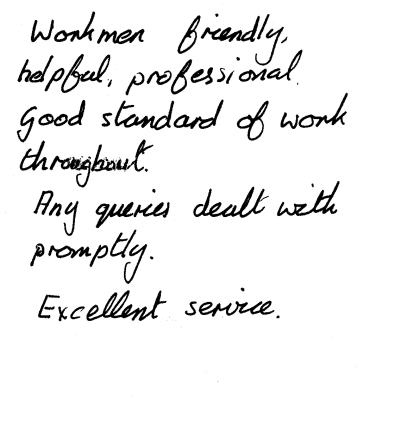 Workmen friendly,
helpful, professional.
Good standard of work
throughout.
Any queries dealt with
promptly.
Excellent service.